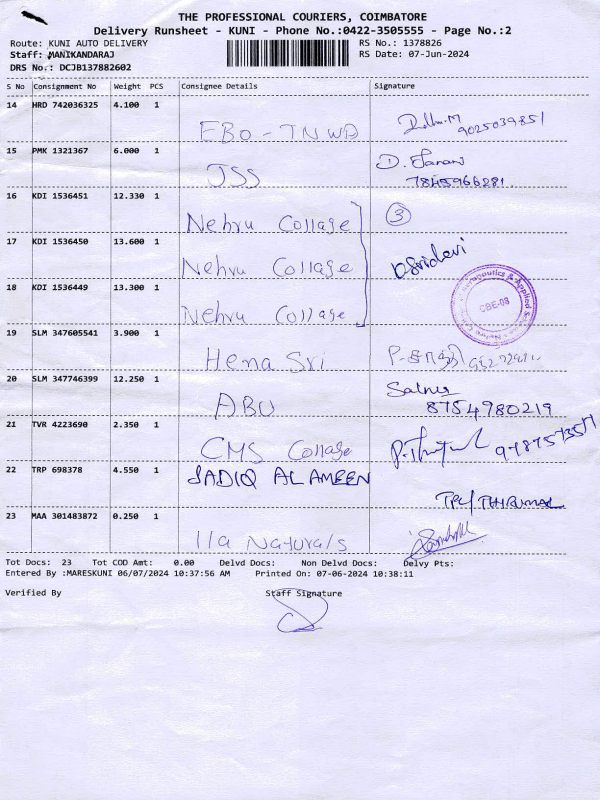 THE PROFESSIONAL COURIERS, COIMBATORE
Delivery Runsheet - KUNI - Phone No.:0422-3505555 - Page No.:2
Route: KUNI AUTO DELIVERY
RS No.: 1378826
Staff: MANIKANDARAJ
RS Date: 07-Jun-2024
DRS No.: DCJB137882602
S No Consignment No Weight PCS Consignee Details Signature
14 HRD 742036325 4.100 1
EBO - TNWD
9025039851
15 PMK 1321367 6.000 1
JSS
D. Saran
7845966281
16 KDI 1536451 12.330 1
Nehru Collage
3
17 KDI 1536450 13.600 1
Nehru Collage
Dsridevi
18 KDI 1536449 13.300 1
Nehru Collage
CBE-08
19 SLM 347605541 3.900 1
Hena Sri
20 SLM 347746399 12.250 1
ABU
8754980219
21 TVR 4223690 2.350 1
CMS Collage
22 TRP 698378 4.550 1
SADIQ AL AMEEN
23 MAA 301483872 0.250 1
Naturals
Tot Docs: 23 Tot COD Amt: 0.00 Delvd Docs: Non Delvd Docs: Delvy Pts:
Entered By :MARESKUNI 06/07/2024 10:37:56 AM Printed On: 07-06-2024 10:38:11
Verified By Staff Signature